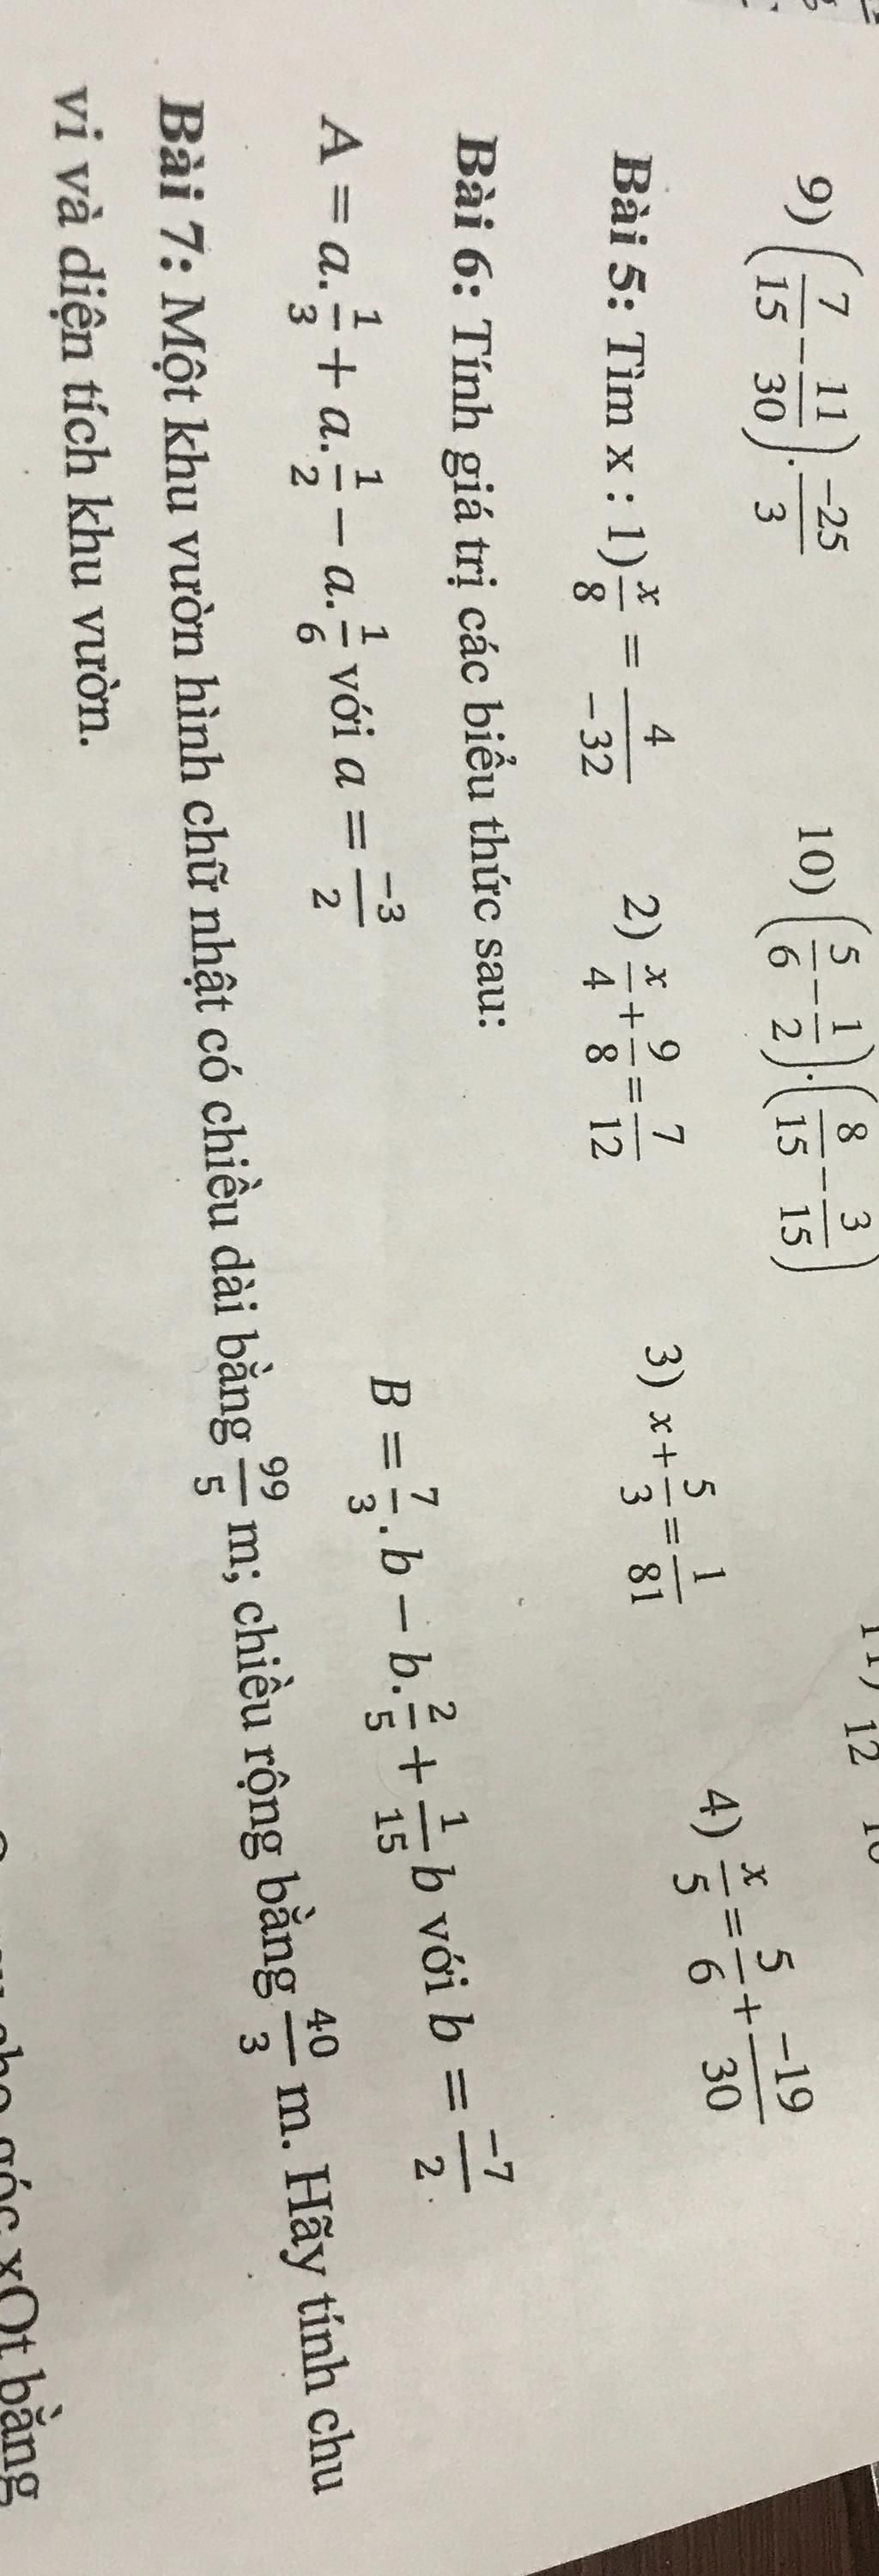 9) (7/15 − 11/30) . −25/3 10) (5/6 − 1/2).(8/15 − 3/15)
Bài 5: Tìm x : 1) x/8 = 4/−32 2) x/4 + 9/8 = 7/12 3) x + 5/3 = 1/81 4) x/5 = 5/6 + −19/30
Bài 6: Tính giá trị các biểu thức sau:
A = a. 1/3 + a. 1/2 − a. 1/6 với a = −3/2 B = 7/3 . b − b. 2/5 + 1/15 b với b = −7/2 .
Bài 7: Một khu vườn hình chữ nhật có chiều dài bằng 99/5 m; chiều rộng bằng 40/3 m. Hãy tính chu
vi và diện tích khu vườn.
góc xOt bằng